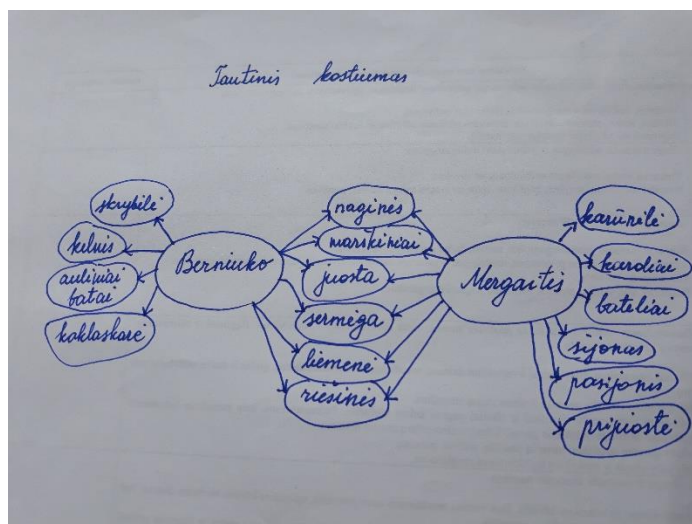 Tautinis kostiumas
skrybilė
kelnis
auliniai
batai
kaklaskarė
Berniuko
naginės
marškiniai
juosta
sermėga
liemenė
riešinės
Mergaitis
karūnėlė
karoliai
bateliai
sijonas
pasijonis
prijuostė